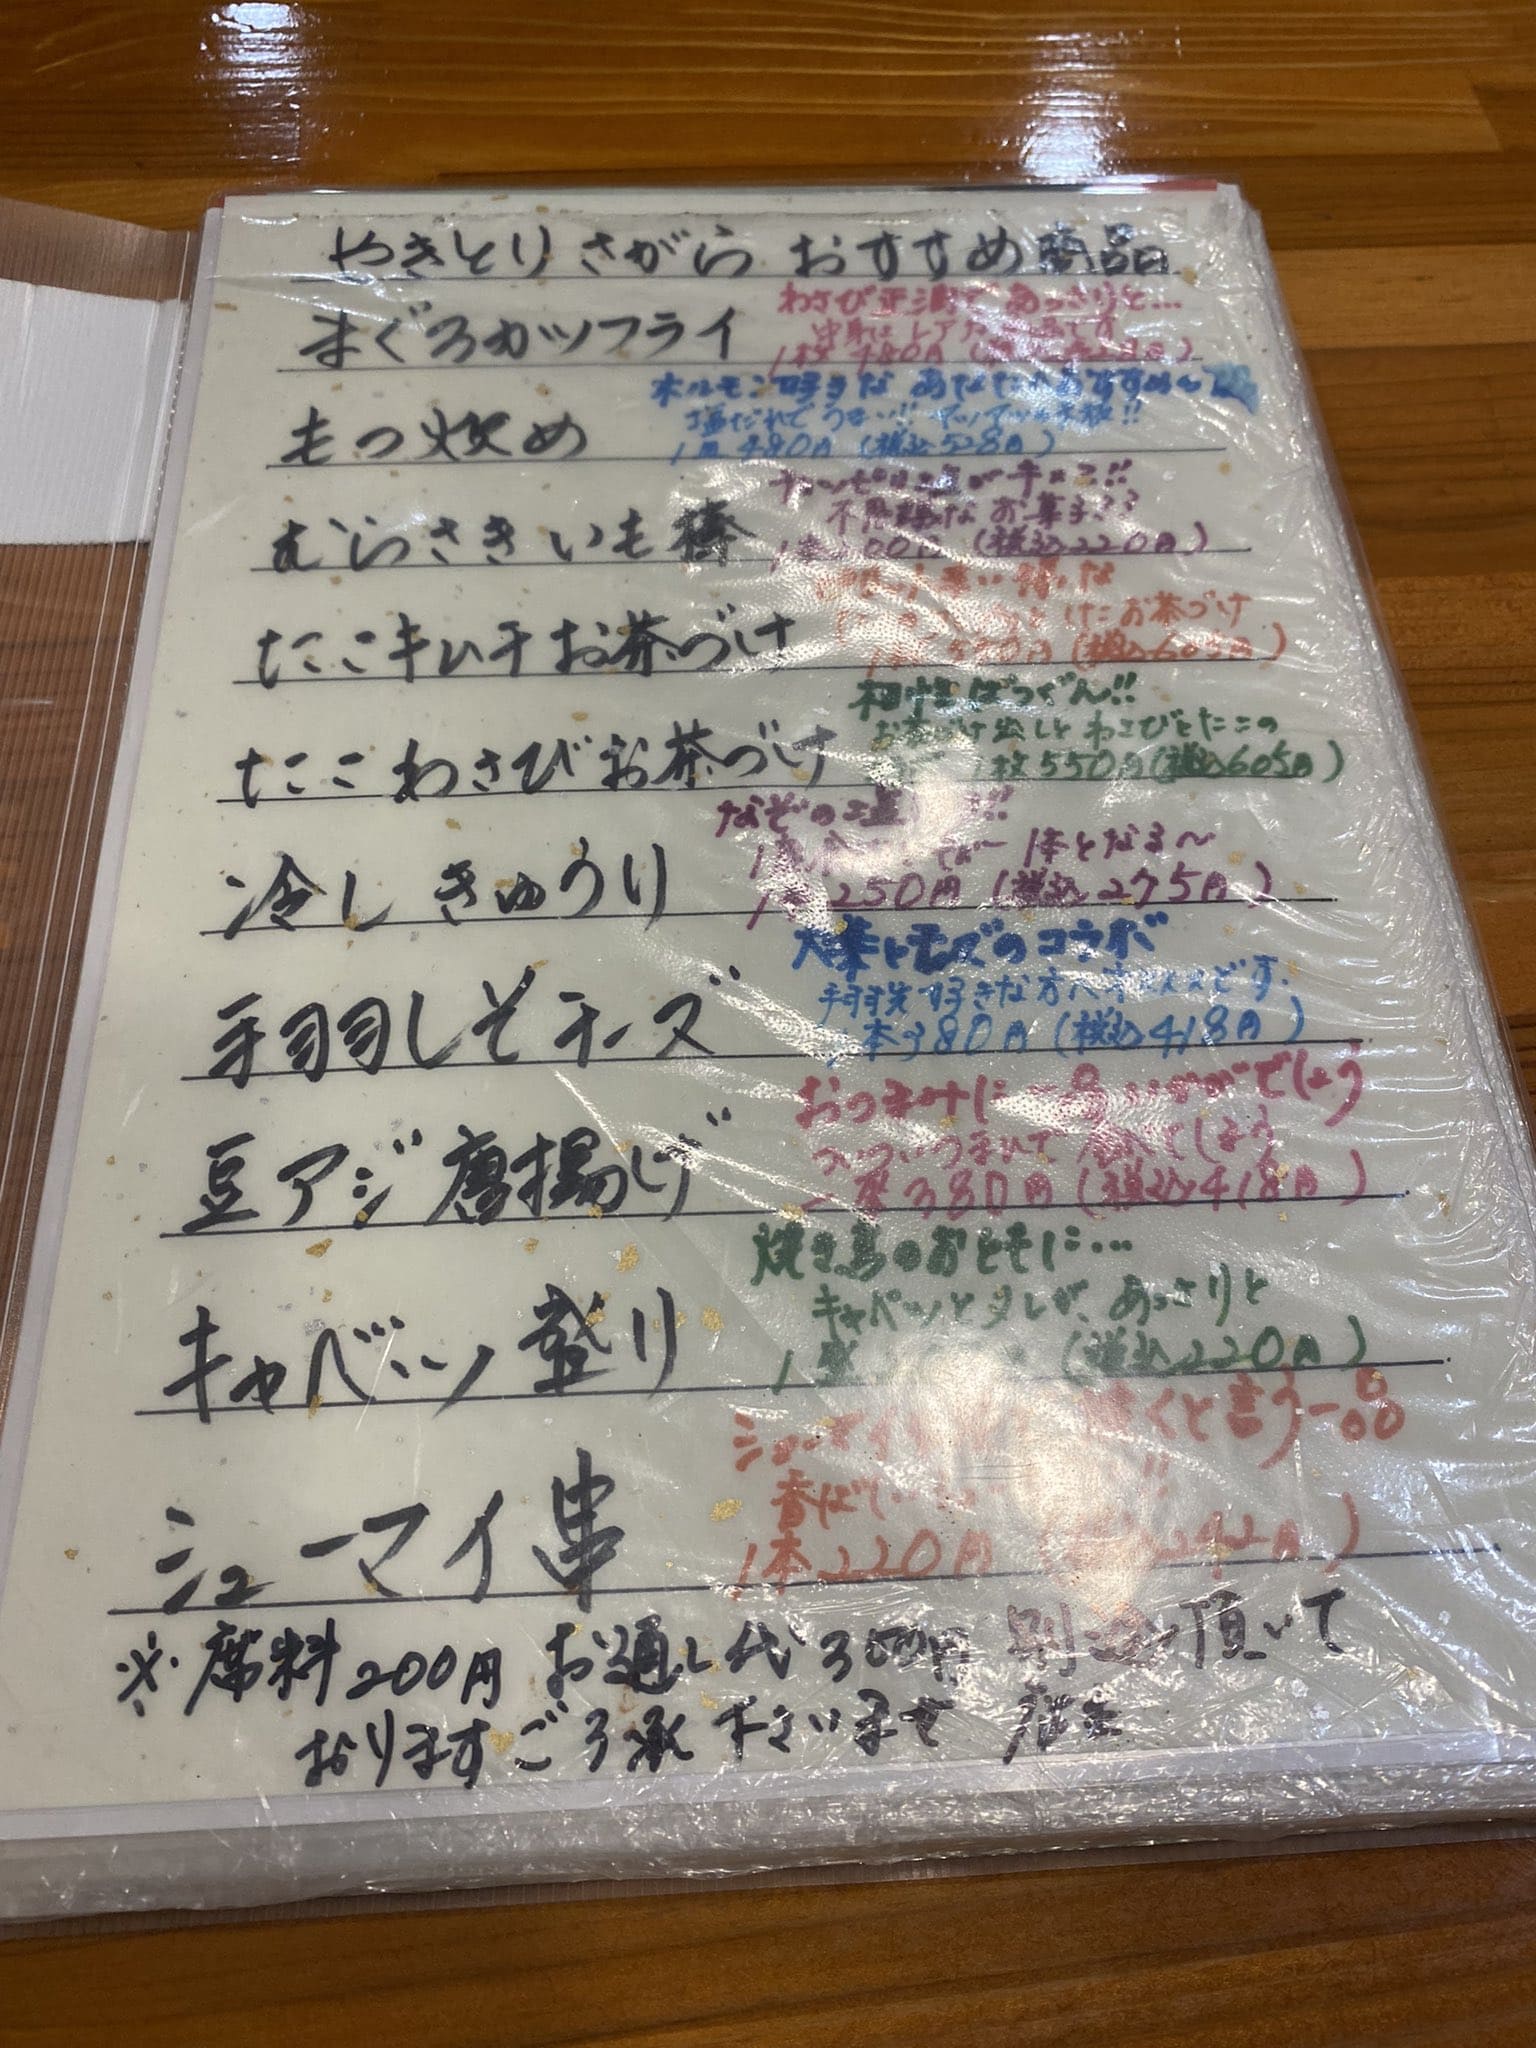 やきとり さがら おすすめ商品
まぐろカツフライ
わさび正油であっさりと…
中身はレア です
1枚 480円 (
もつ炒め
ホルモン好きなあなたにおすすめ〜
塩だれでうまい!! アツアツ
1皿 480円 (税込528円)
むらさきいも棒
チョッピリ塩がキメ
不思議なお菓子??
(税込220円)
たこキムチお茶づけ
たお茶づけ
550円 (税込605円)
たこわさびお茶づけ
相性ばつぐん!!
お茶づけ出しとわさびとたこの
1杯 550円 (税込605円)
冷しきゅうり
なぞの塩
1本となる〜
1本 250円 (税込275円)
手羽しそチーズ
大葉とチーズのコラボ
手羽先好きな方へオススメです.
1本 380円 (税込418円)
豆アジ唐揚げ
おつまみに一品いかがでしょう
ついついつまんで しょう
一皿 380円 (税込418円)
キャベツ盛り
焼き鳥のおともに…
キャベツとタレが、あっさりと
1盛 (税込220円)
シューマイ串
シューマイ くと言う一品
香ばし
1本 220円 (税込242円)
※席料200円 お通し代300円 別途頂いて
おりますご了承下さいませ 店主